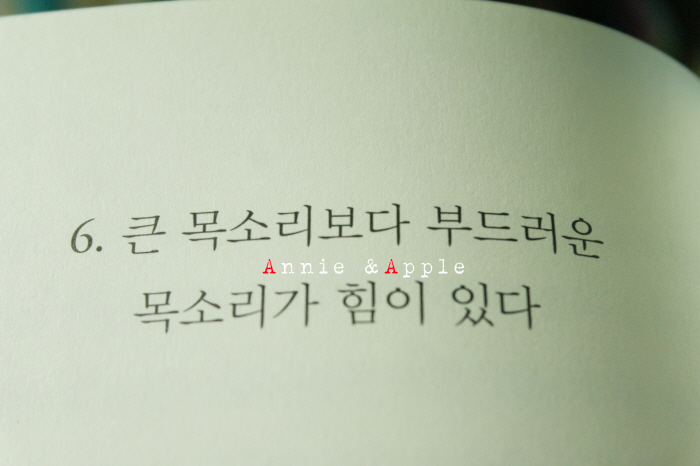 6. 큰 목소리보다 부드러운
Annie & Apple
목소리가 힘이 있다